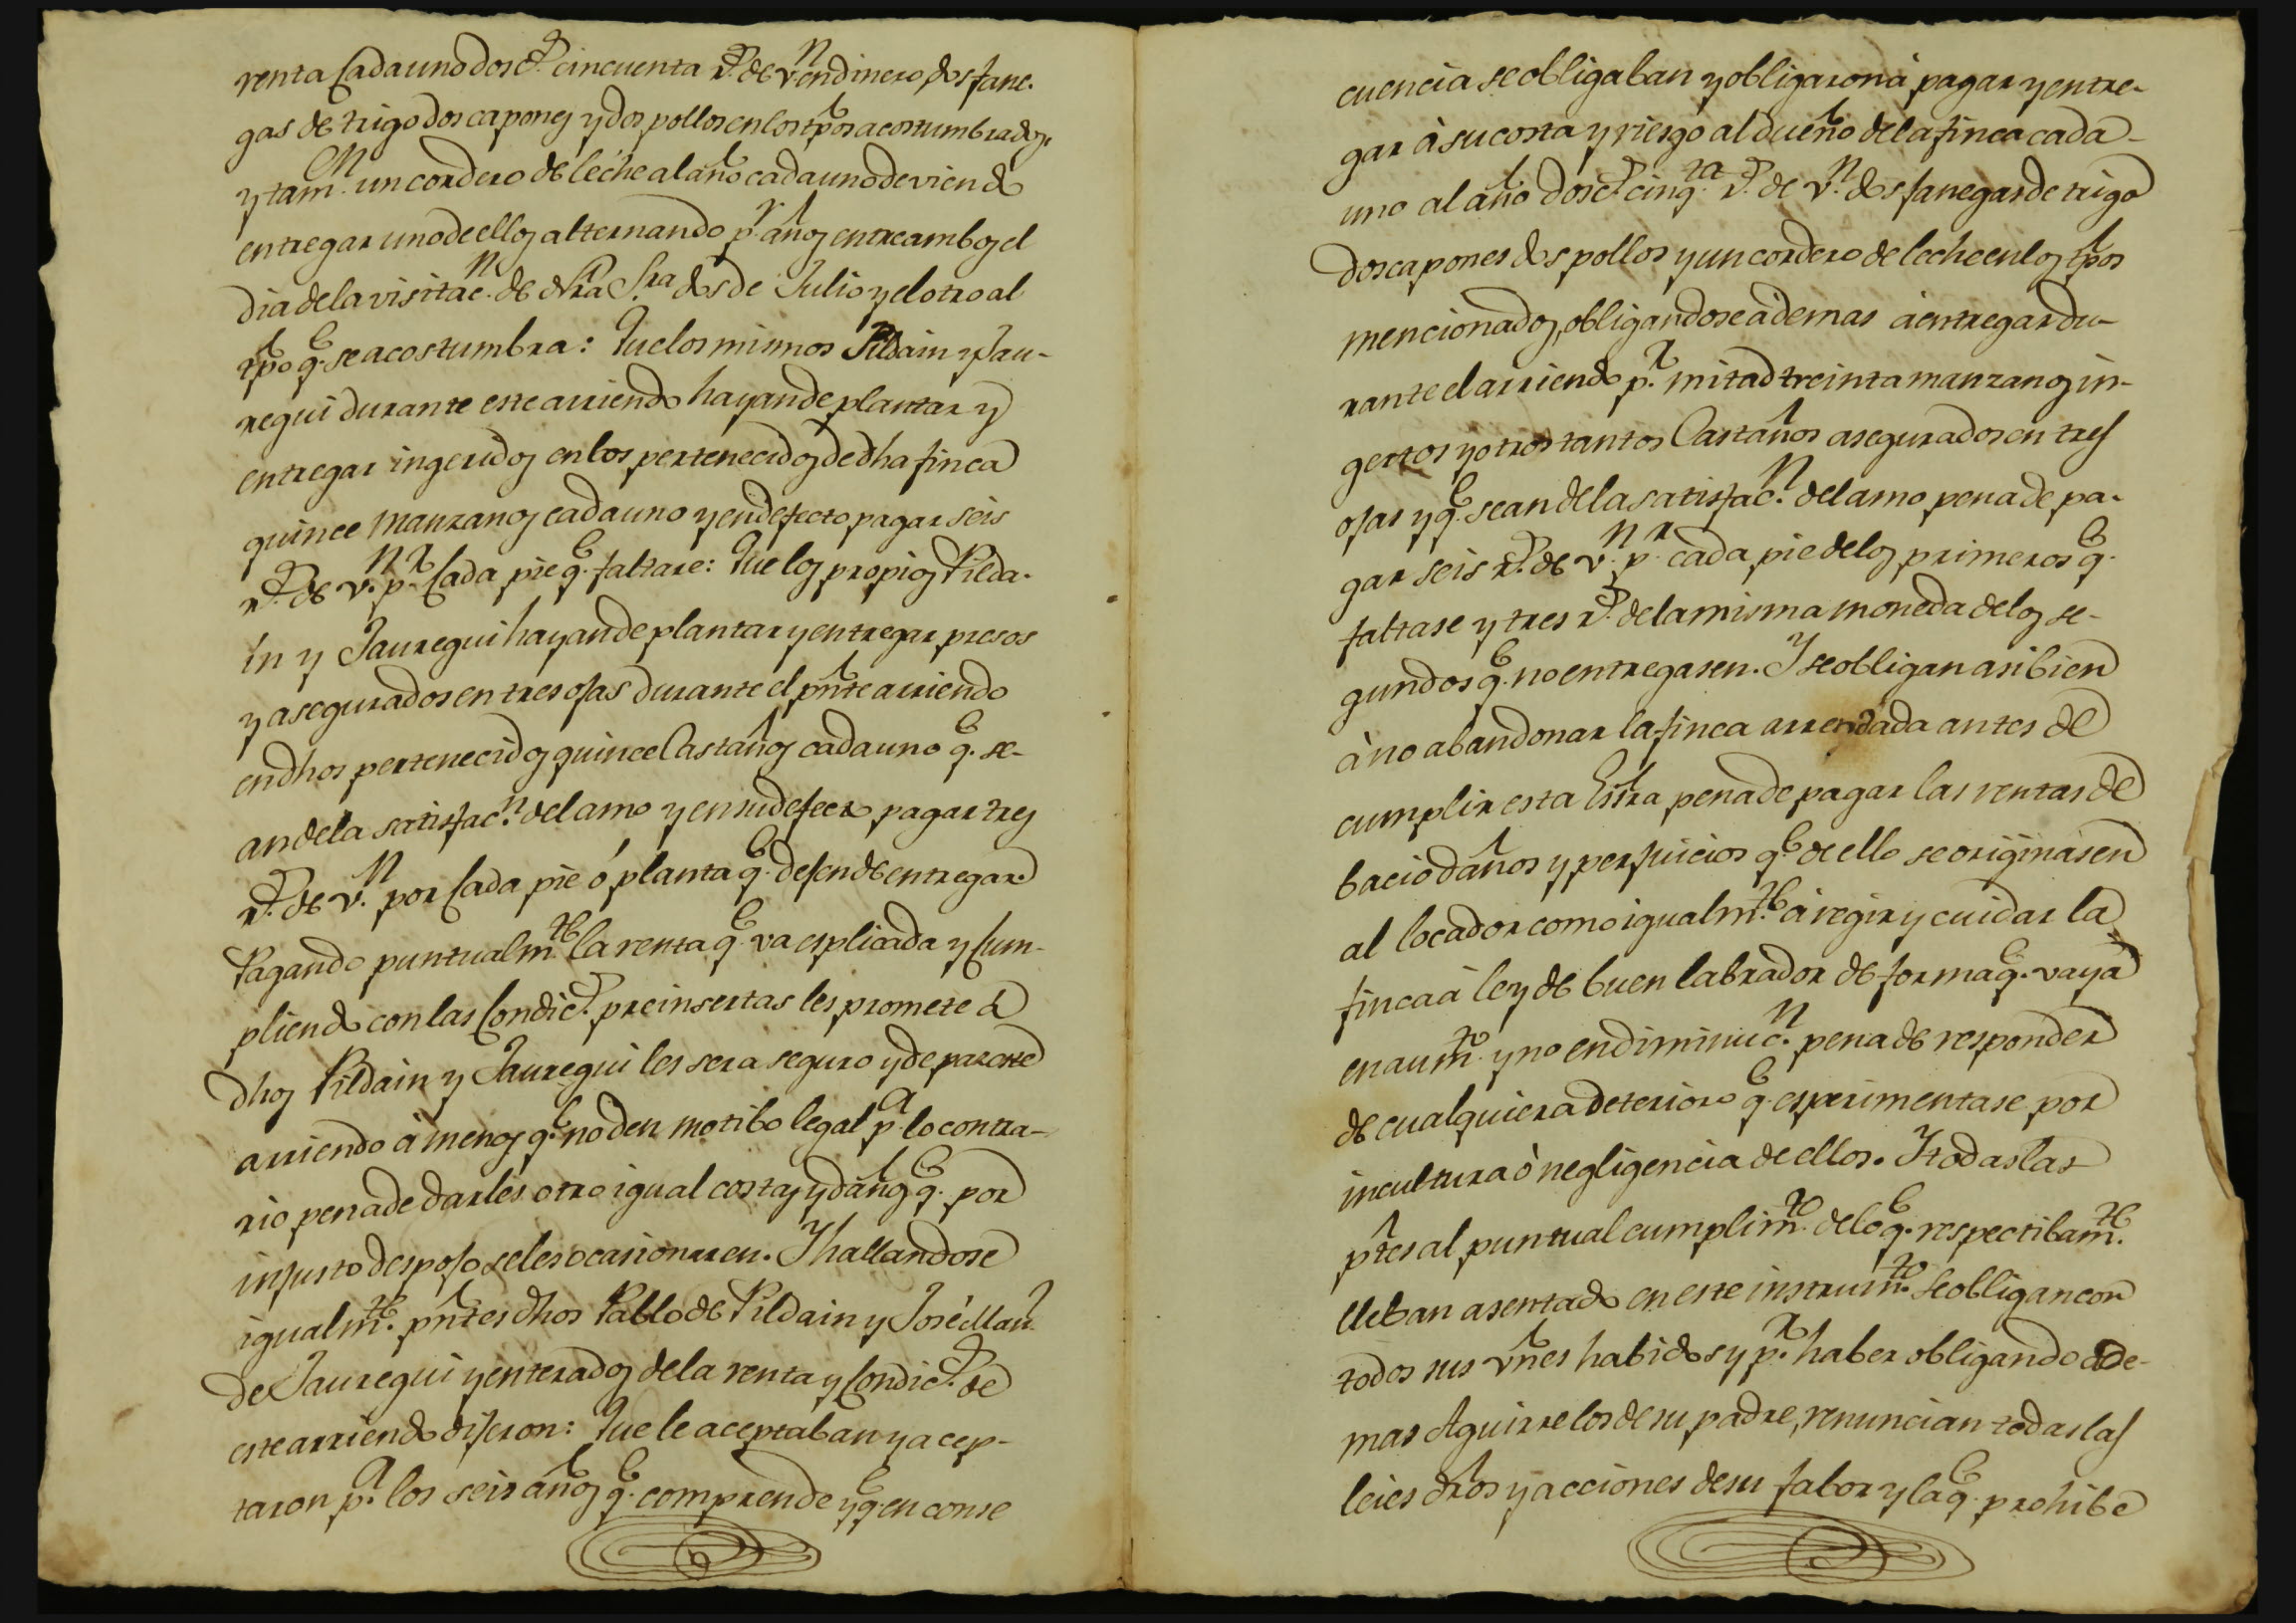 renta Cada uno dosc.s cincuenta r.s de v.n en dinero, dos fane-
gas de trigo dos capones y dos pollos en los tpos acostumbrados,
y tam.n un cordero de leche al año cada uno deviendo
entregar uno de ellos alternando p.r años entre ambos el
dia de la visitac.n de Nra Sra dos de Julio y el otro al
tpo q.e se acostumbra: Que los mismos Pildain y Jau-
regui durante este arriendo hayan de plantar y
entregar ingeridos en los pertenecidos de dha finca
quince Manzanos cada uno y en defecto pagar seis
r.s de v.n p.r Cada pie q.e faltare: Que los propios Pilda-
in y Jauregui hayan de plantar y entregar presos
y asegurados en tres ojas durante el pnte arriendo
en dhos pertenecidos quince Castaños cada uno q.e se-
an de la satisfac.n del amo y en su defecto pagar tres
r.s de v.n por Cada pie ó planta q.e dejen de entregar
Pagando puntualm.te la renta q.e va esplicada y Cum-
pliendo con las Condic.s preinsertas les promete á
dhos Pildain y Jauregui les sera seguro y de paz este
arriendo á menos q.e no den motibo legal p.a lo contra-
rio pena de darles otro igual costas y daños q.e por
injusto despojo se les ocasionaren. Y hallandose
igualm.te pntes dhos Pablo de Pildain y José Man.l
de Jauregui y enterados de la renta y Condic.s de
este arriendo dijeron: Que le aceptaban y acep-
taron p.a los seis años q.e comprende y q.e en conse
cuencia se obligaban y obligaron á pagar y entre-
gar á su costa y riesgo al dueño de la finca cada
uno al año dosc.s cinq.ta r.s de v.n dos fanegas de trigo
dos capones dos pollos y un cordero de leche en los tpos
mencionados, obligandose ademas á entregar du-
rante el arriendo p.r mitad treinta manzanos in-
gertos y otros tantos Castaños asegurados en tres
ojas y q.e sean de la satisfac.n del amo pena de pa-
gar seis r.s de v.n p.r cada pie de los primeros q.e
faltase y tres r.s de la misma moneda de los se-
gundos q.e no entregasen. Y se obligan asi bien
á no abandonar la finca arrendada antes de
cumplir esta Esra pena de pagar las rentas de
bacio daños y perjuicios q.e de ello se originasen
al locador como igualm.te á regir y cuidar la
finca á ley de buen labrador de forma q.e vaya
en aum.to y no en diminuc.n pena de responder
de cualquiera deterioro q.e esperimentase por
incultura ó negligencia de ellos. Y todas las
ptes al puntual cumplim.to de lo q.e respectibam.te
lleban asentado en este instrum.to se obligan con
todos sus vnes habidos y p.r haber obligando ade-
mas Aguirre los de su padre, renuncian todas las
leies dros y acciones de su fabor y la q.e prohibe